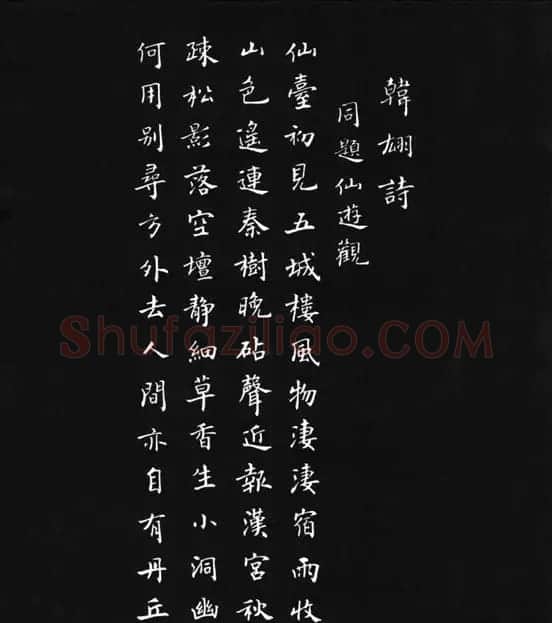 韓翃詩
同題仙遊觀
仙臺初見五城樓風物淒淒宿雨收
山色遙連秦樹晚砧聲近報漢宮秋
疎松影落空壇静細草香生小洞幽
何用別尋方外去人間亦自有丹丘
Shufaziliao.COM